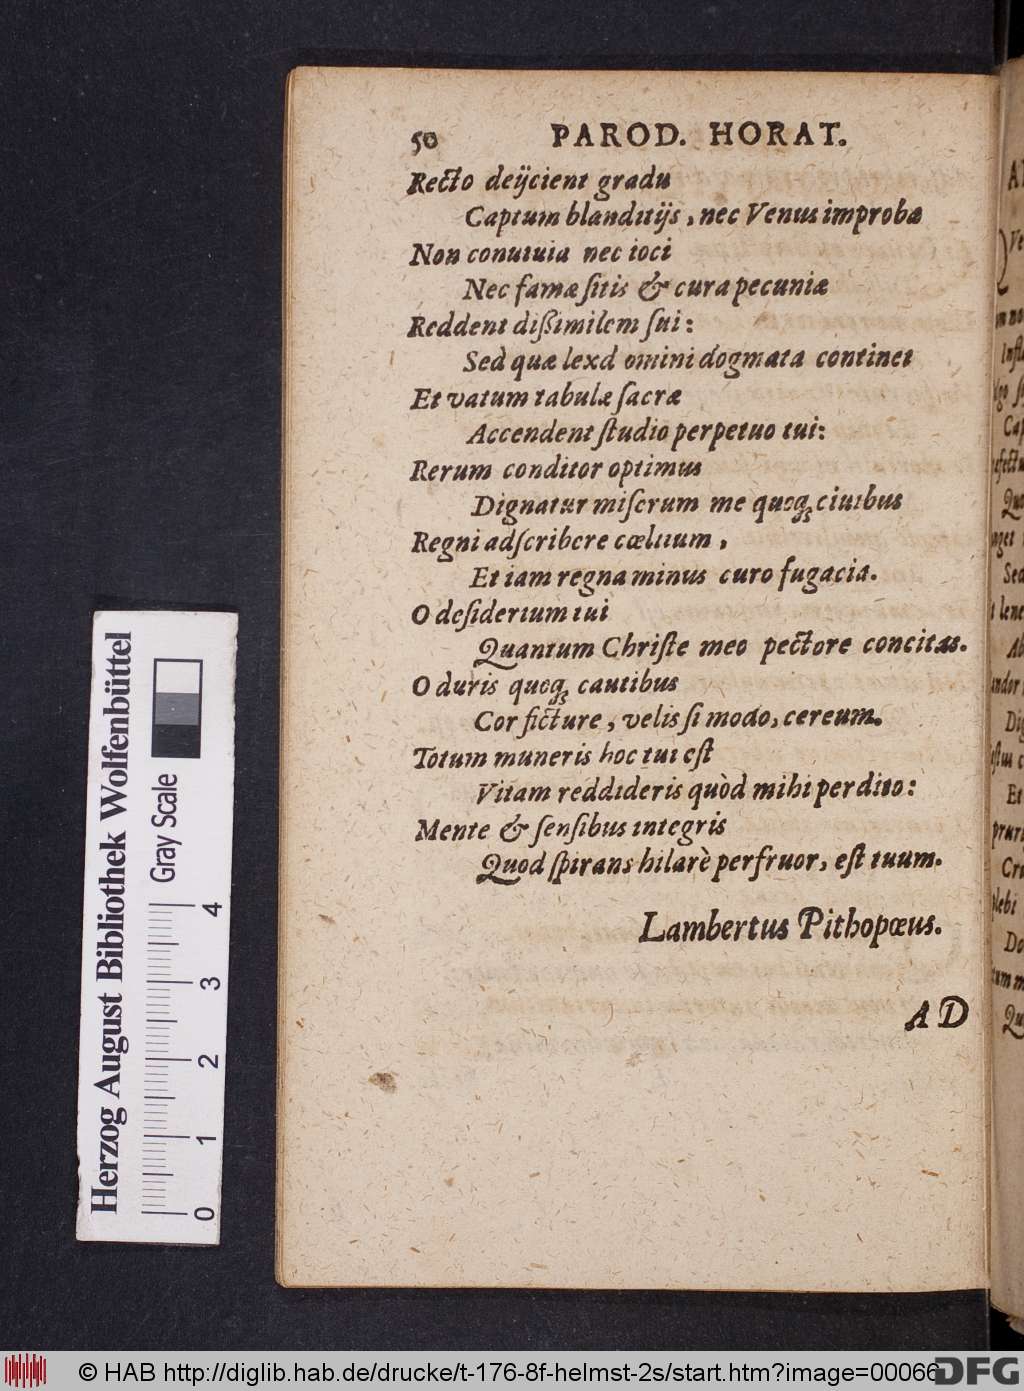 50 PAROD. HORAT.
Recto deijcient gradu
Captum blanditijs, nec Venus improba
Non conuiuia nec ioci
Nec famæ ſitis & cura pecuniæ
Reddent dißimilem ſui:
Sed quæ lexd omini dogmata continet
Et vatum tabulæ ſacræ
Accendent ſtudio perpetuo tui:
Rerum conditor optimus
Dignatur miſerum me quoq; ciuibus
Regni adſcribere cœlitum,
Et iam regna minus curo fugacia.
O deſiderium tui
Quantum Chriſte meo pectore concitas.
O duris quoq; cautibus
Cor ficture, velis ſi modo, cereum.
Totum muneris hoc tui eſt
Vitam reddideris quòd mihi perdito:
Mente & ſenſibus integris
Quod ſpirans hilarè perfruor, eſt tuum.
Lambertus Pithopœus.
AD
Herzog August Bibliothek Wolfenbüttel
Gray Scale
0 1 2 3 4
© HAB http://diglib.hab.de/drucke/t-176-8f-helmst-2s/start.htm?image=00066
DFG